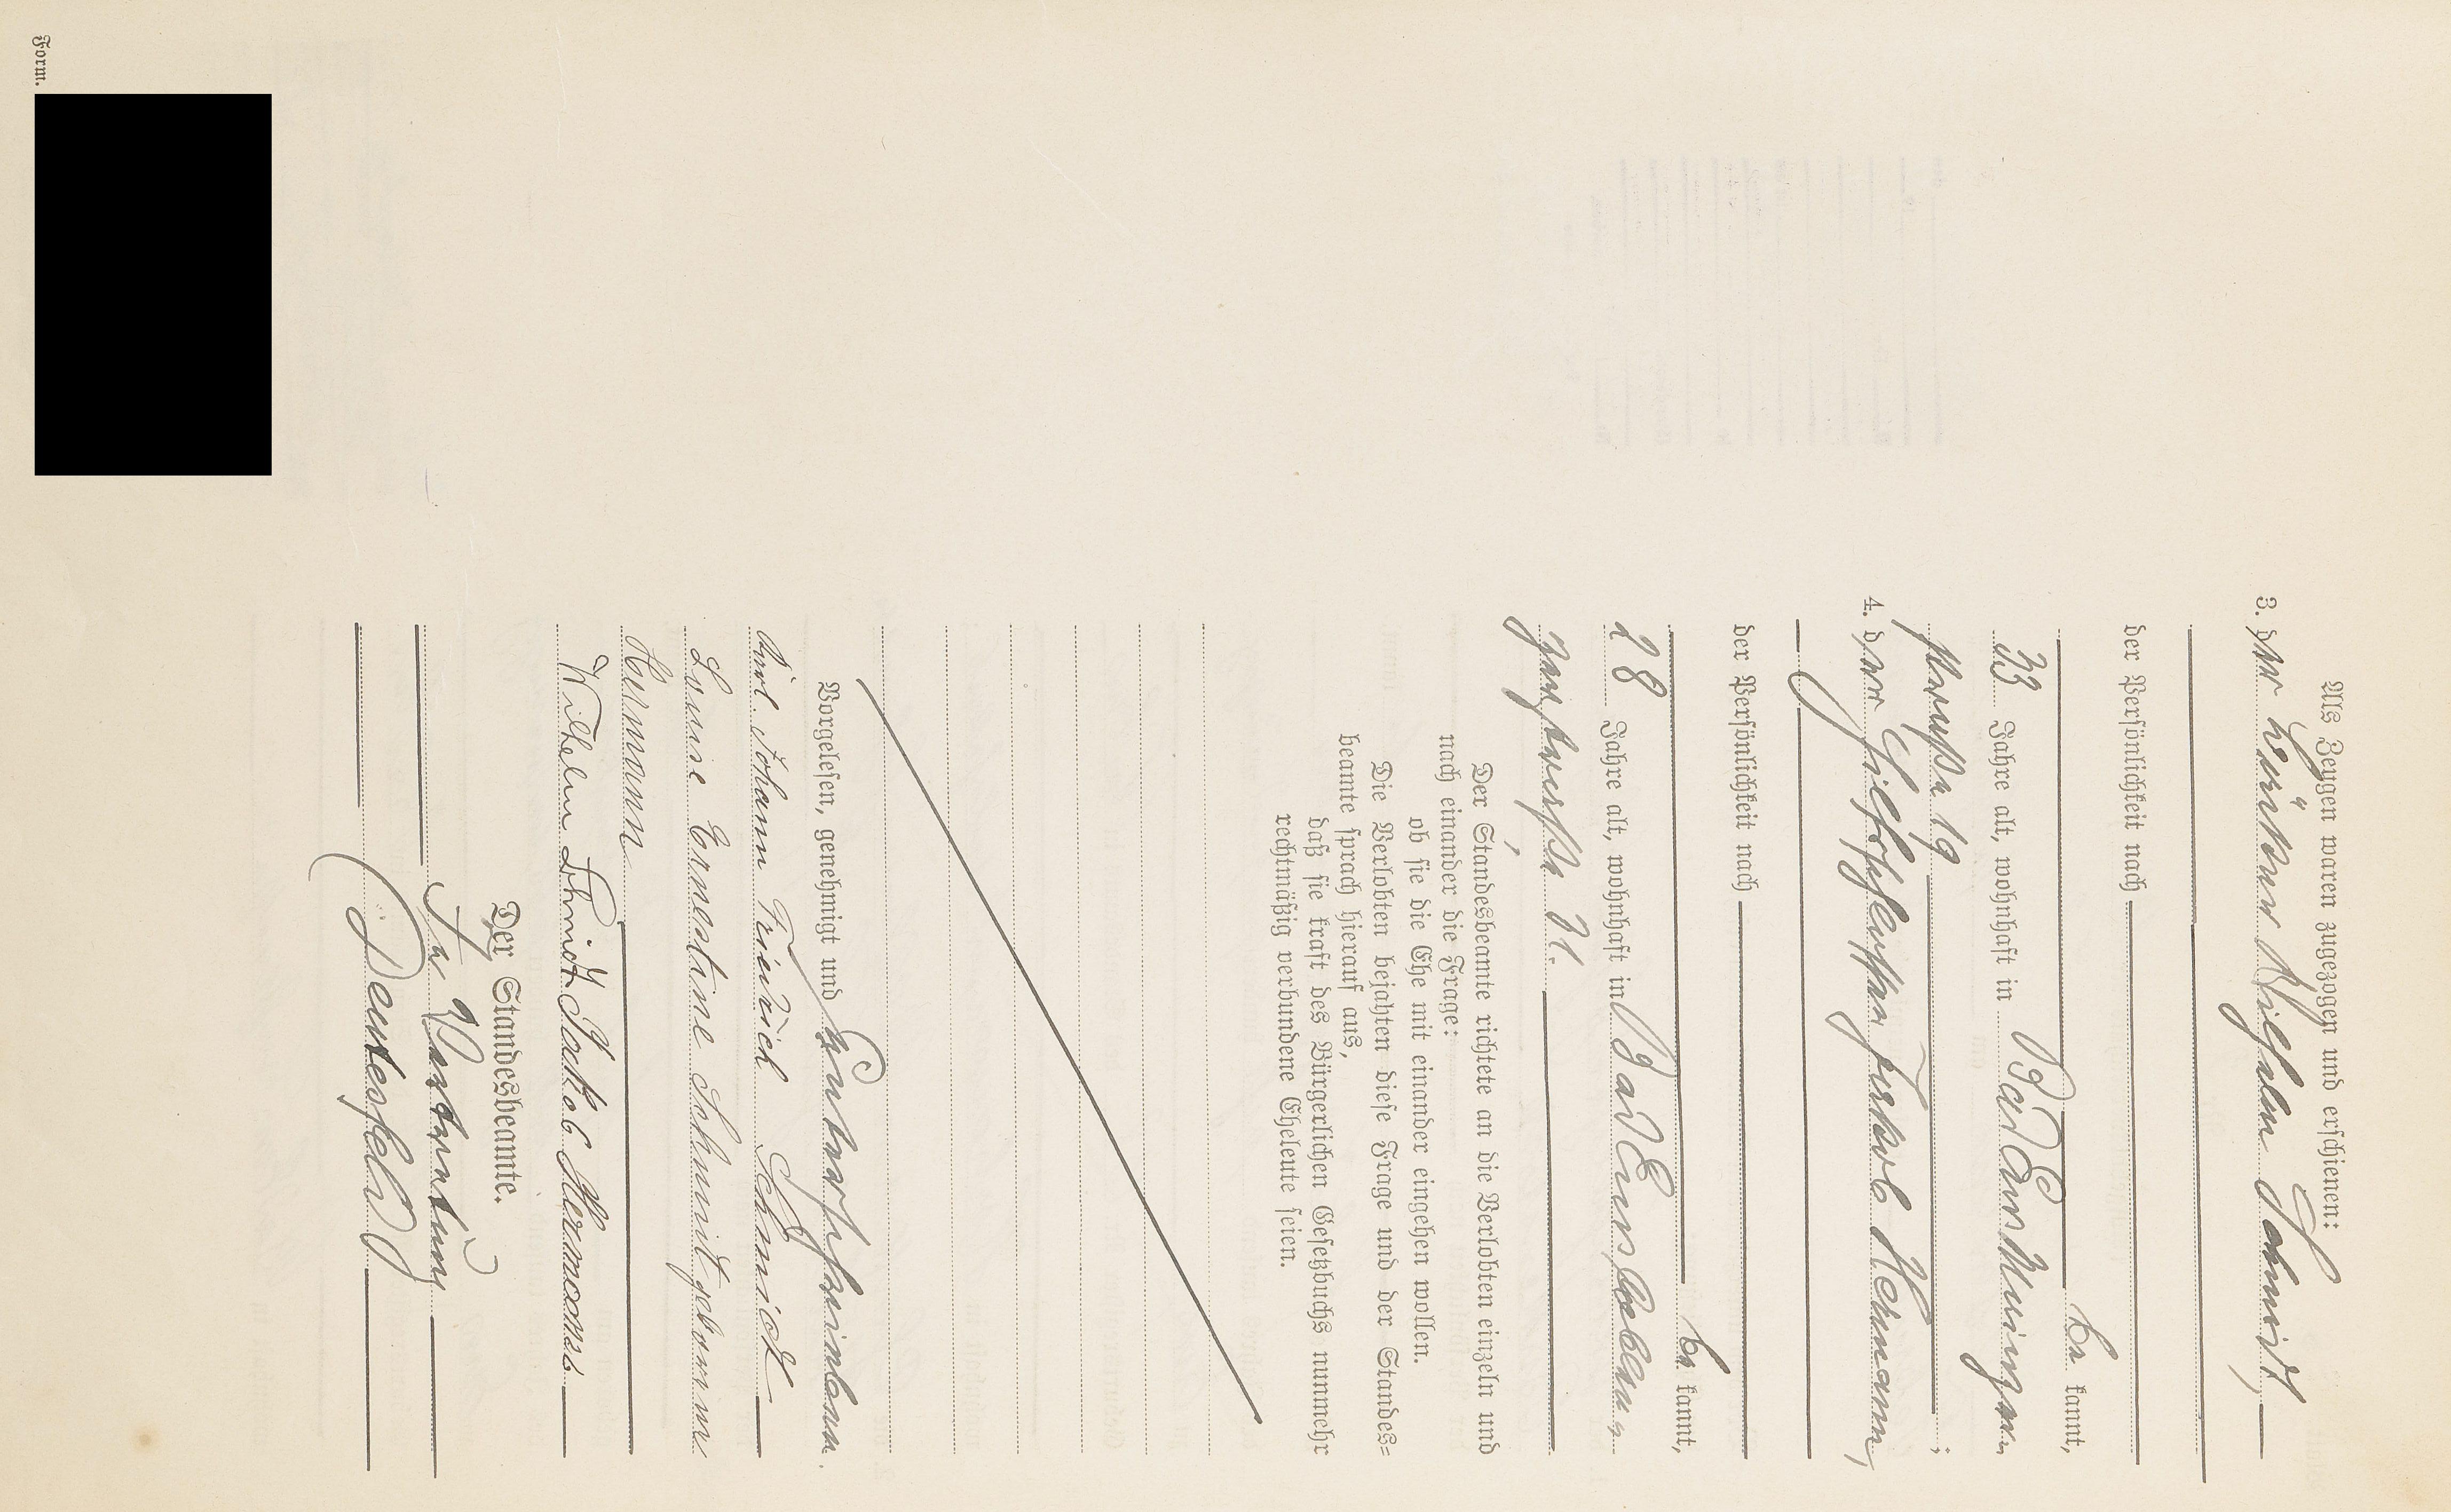 Als Zeugen waren zugezogen und erschienen:
3. der Küster Wilhelm Schmidt,
der Persönlichkeit nach
be kannt,
33 Jahre alt, wohnhaft in Bad Ems
straße 19;
4. der Hilfsschaffner Jakob Hermann,
der Persönlichkeit nach
be kannt,
28 Jahre alt, wohnhaft in Bad Ems,
straße
Der Standesbeamte richtete an die Verlobten einzeln und
nach einander die Frage:
ob sie die Ehe mit einander eingehen wollen.
Die Verlobten bejahten diese Frage und der Standes=
beamte sprach hierauf aus,
daß sie kraft des Bürgerlichen Gesetzbuchs nunmehr
rechtmäßig verbundene Eheleute seien.
Vorgelesen, genehmigt und unterschrieben.
Karl Johann Friedrich Schmidt
Louise Ernestine Schmidt geborene
Hermann
Wilhelm Schmidt Jakob Hermann
Der Standesbeamte.
In Vertretung
Form.